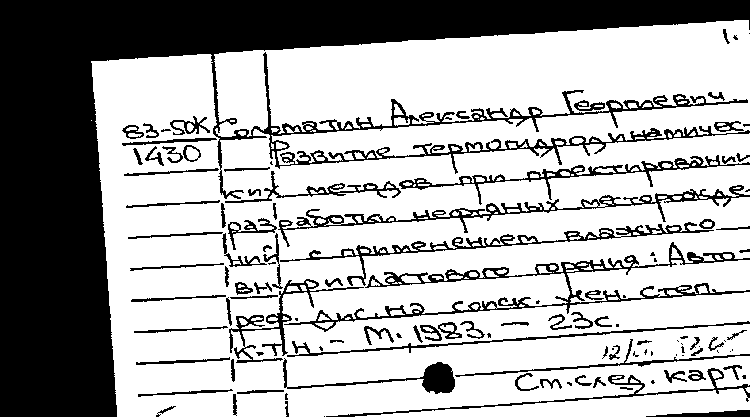 1.
83-50К Соломатин, Александр Георгиевич.
1430 Развитие термогидродинамичес-
ких методов при проектировании
разработки нефтяных месторожде-
ний с применением влажного
внутрипластового горения: Авто-
реф. Дис. на соиск. учен. степ.
к.т.н. - М., 1983. - 23с.
См. след. карт.